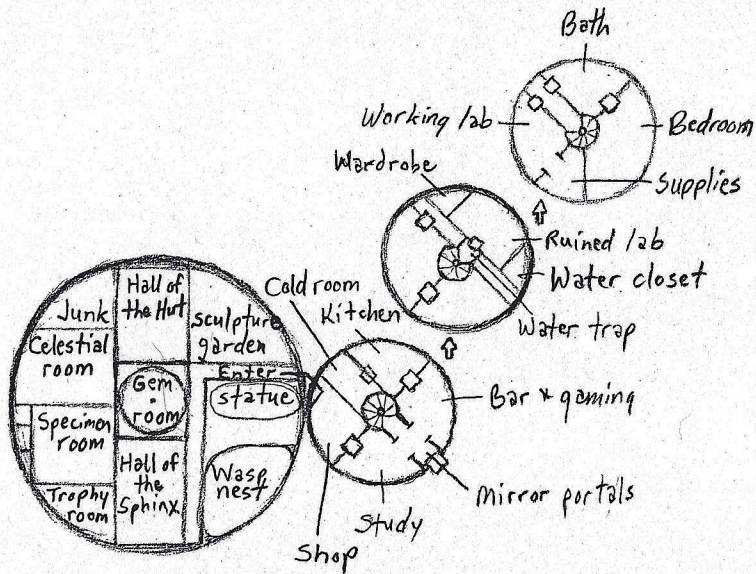 Bath
Working lab
Bedroom
Supplies
Wardrobe
Ruined lab
Water closet
Water trap
Cold room
Kitchen
Bar & gaming
Mirror portals
Study
Shop
Hall of
the Hurt
Junk
Sculpture
garden
Celestial
room
Enter
Gem
room
statue
Specimen
room
Hall of
the
Sphinx
Wasp
nest
Trophy
room